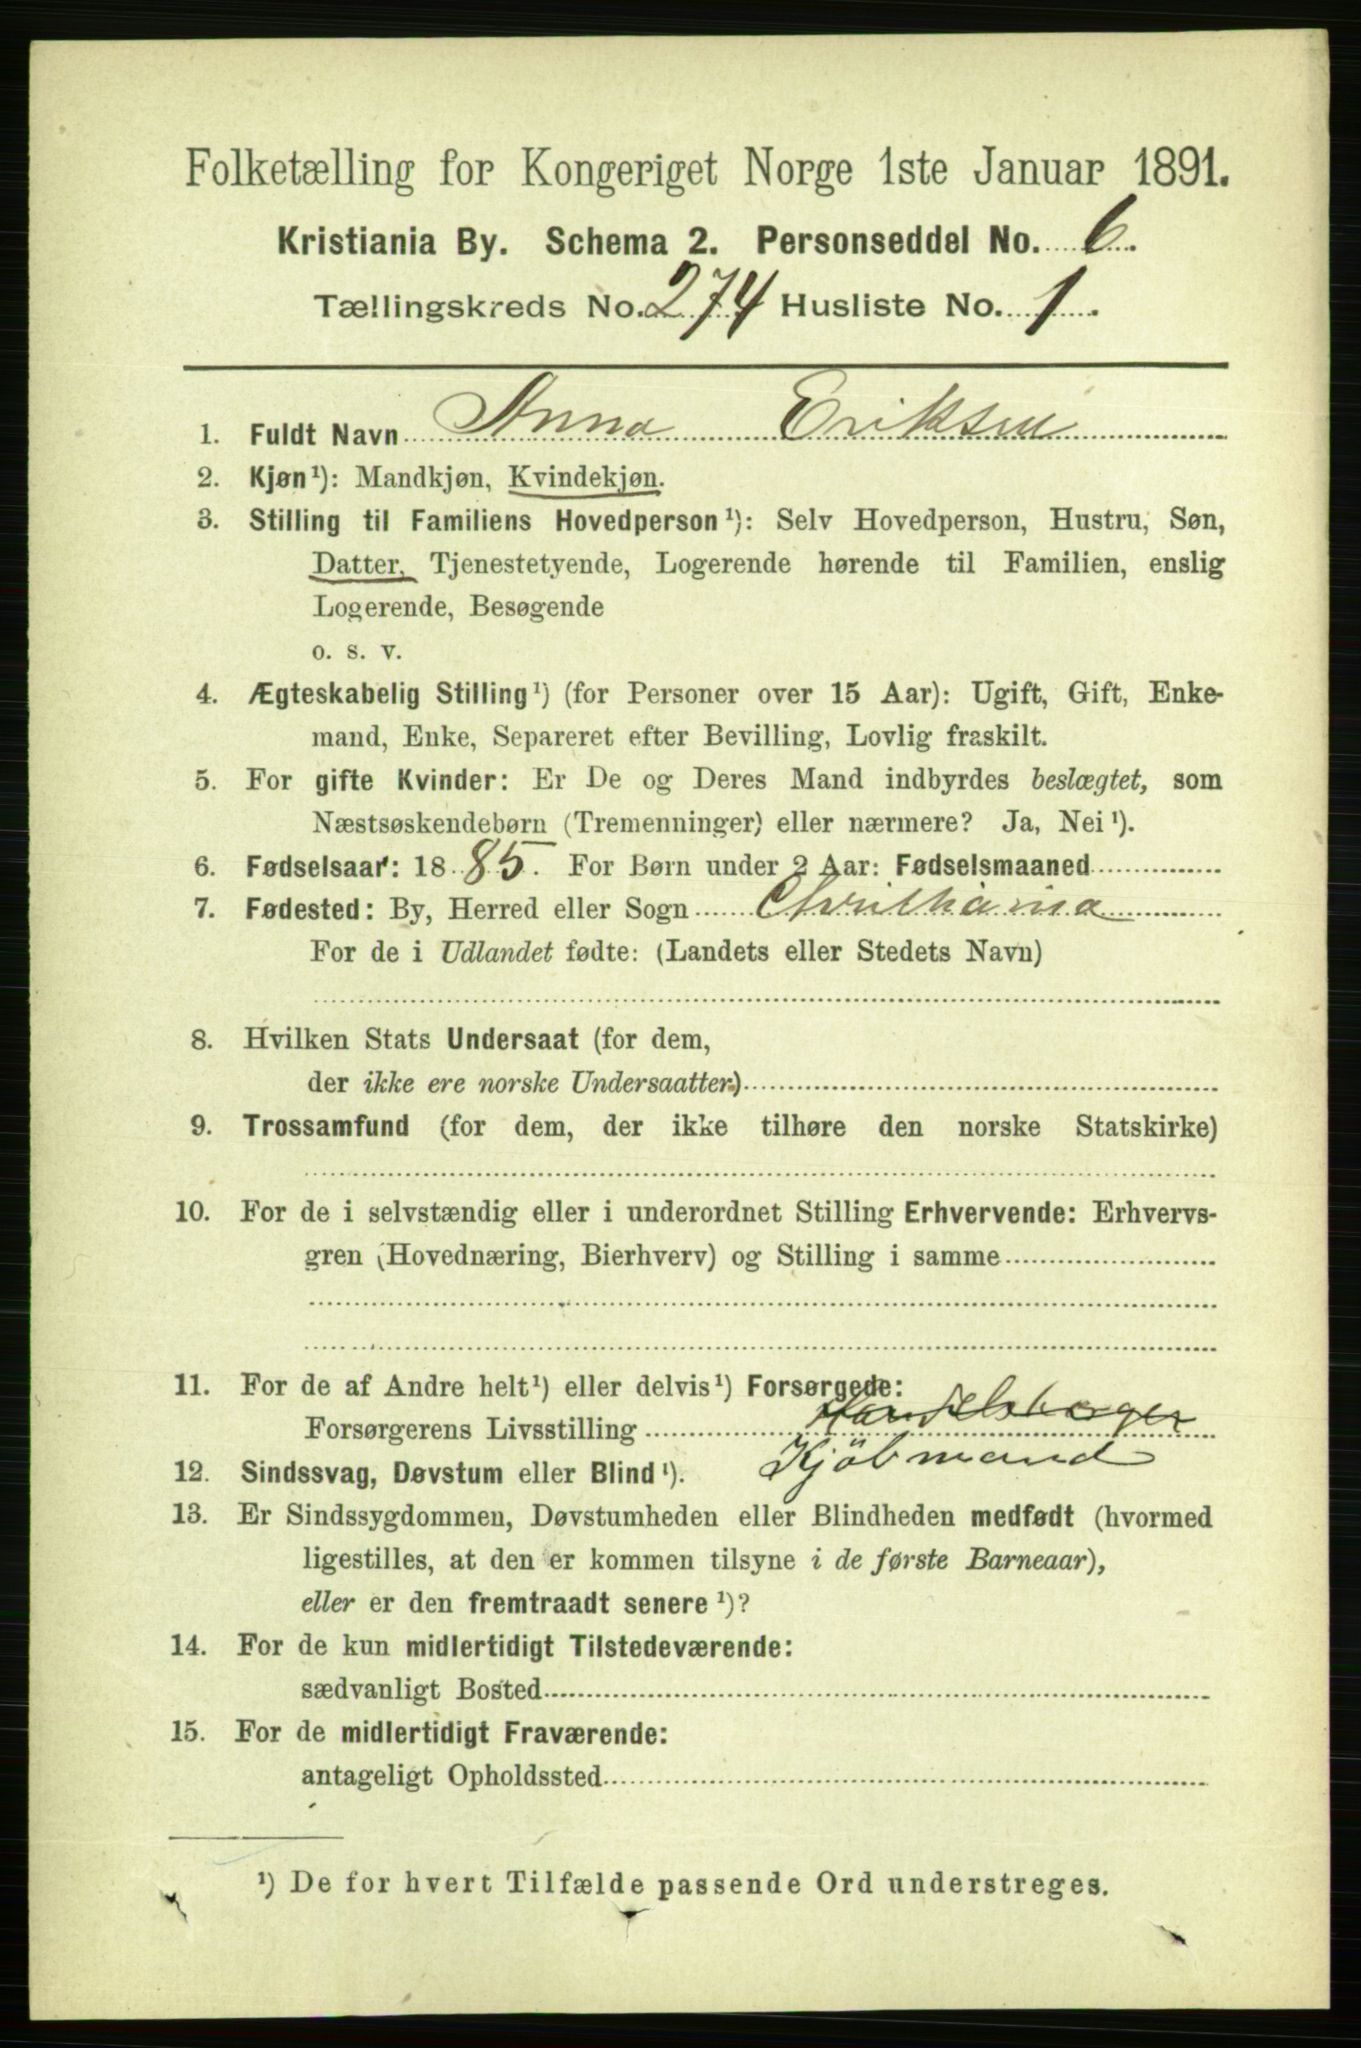 Folketælling for Kongeriget Norge 1ste Januar 1891.
Kristiania By. Schema 2. Personseddel No. 6.
Tællingskreds No. 274 Husliste No. 1.
1. Fuldt Navn Anna Eriksen
2. Kjøn¹): Mandkjøn, Kvindekjøn.
3. Stilling til Familiens Hovedperson¹): Selv Hovedperson, Hustru, Søn,
Datter, Tjenestetyende, Logerende hørende til Familien, enslig
Logerende, Besøgende
o. s. v.
4. Ægteskabelig Stilling¹) (for Personer over 15 Aar): Ugift, Gift, Enke-
mand, Enke, Separeret efter Bevilling, Lovlig fraskilt.
5. For gifte Kvinder: Er De og Deres Mand indbyrdes beslægtet, som
Næstsøskendebørn (Tremenninger) eller nærmere? Ja, Nei¹).
6. Fødselsaar: 1885. For Børn under 2 Aar: Fødselsmaaned
7. Fødested: By, Herred eller Sogn Christiania
For de i Udlandet fødte: (Landets eller Stedets Navn)
8. Hvilken Stats Undersaat (for dem,
der ikke ere norske Undersaatter)
9. Trossamfund (for dem, der ikke tilhøre den norske Statskirke)
10. For de i selvstændig eller i underordnet Stilling Erhvervende: Erhvervs-
gren (Hovednæring, Bierhverv) og Stilling i samme
11. For de af Andre helt¹) eller delvis¹) Forsørgede:
Forsørgerens Livsstilling Handelsborger
Kjöbmand
12. Sindssvag, Døvstum eller Blind¹).
13. Er Sindssygdommen, Døvstumheden eller Blindheden medfødt (hvormed
ligestilles, at den er kommen tilsyne i de første Barneaar),
eller er den fremtraadt senere¹)?
14. For de kun midlertidigt Tilstedeværende:
sædvanligt Bosted
15. For de midlertidigt Fraværende:
antageligt Opholdssted
¹) De for hvert Tilfælde passende Ord understreges.